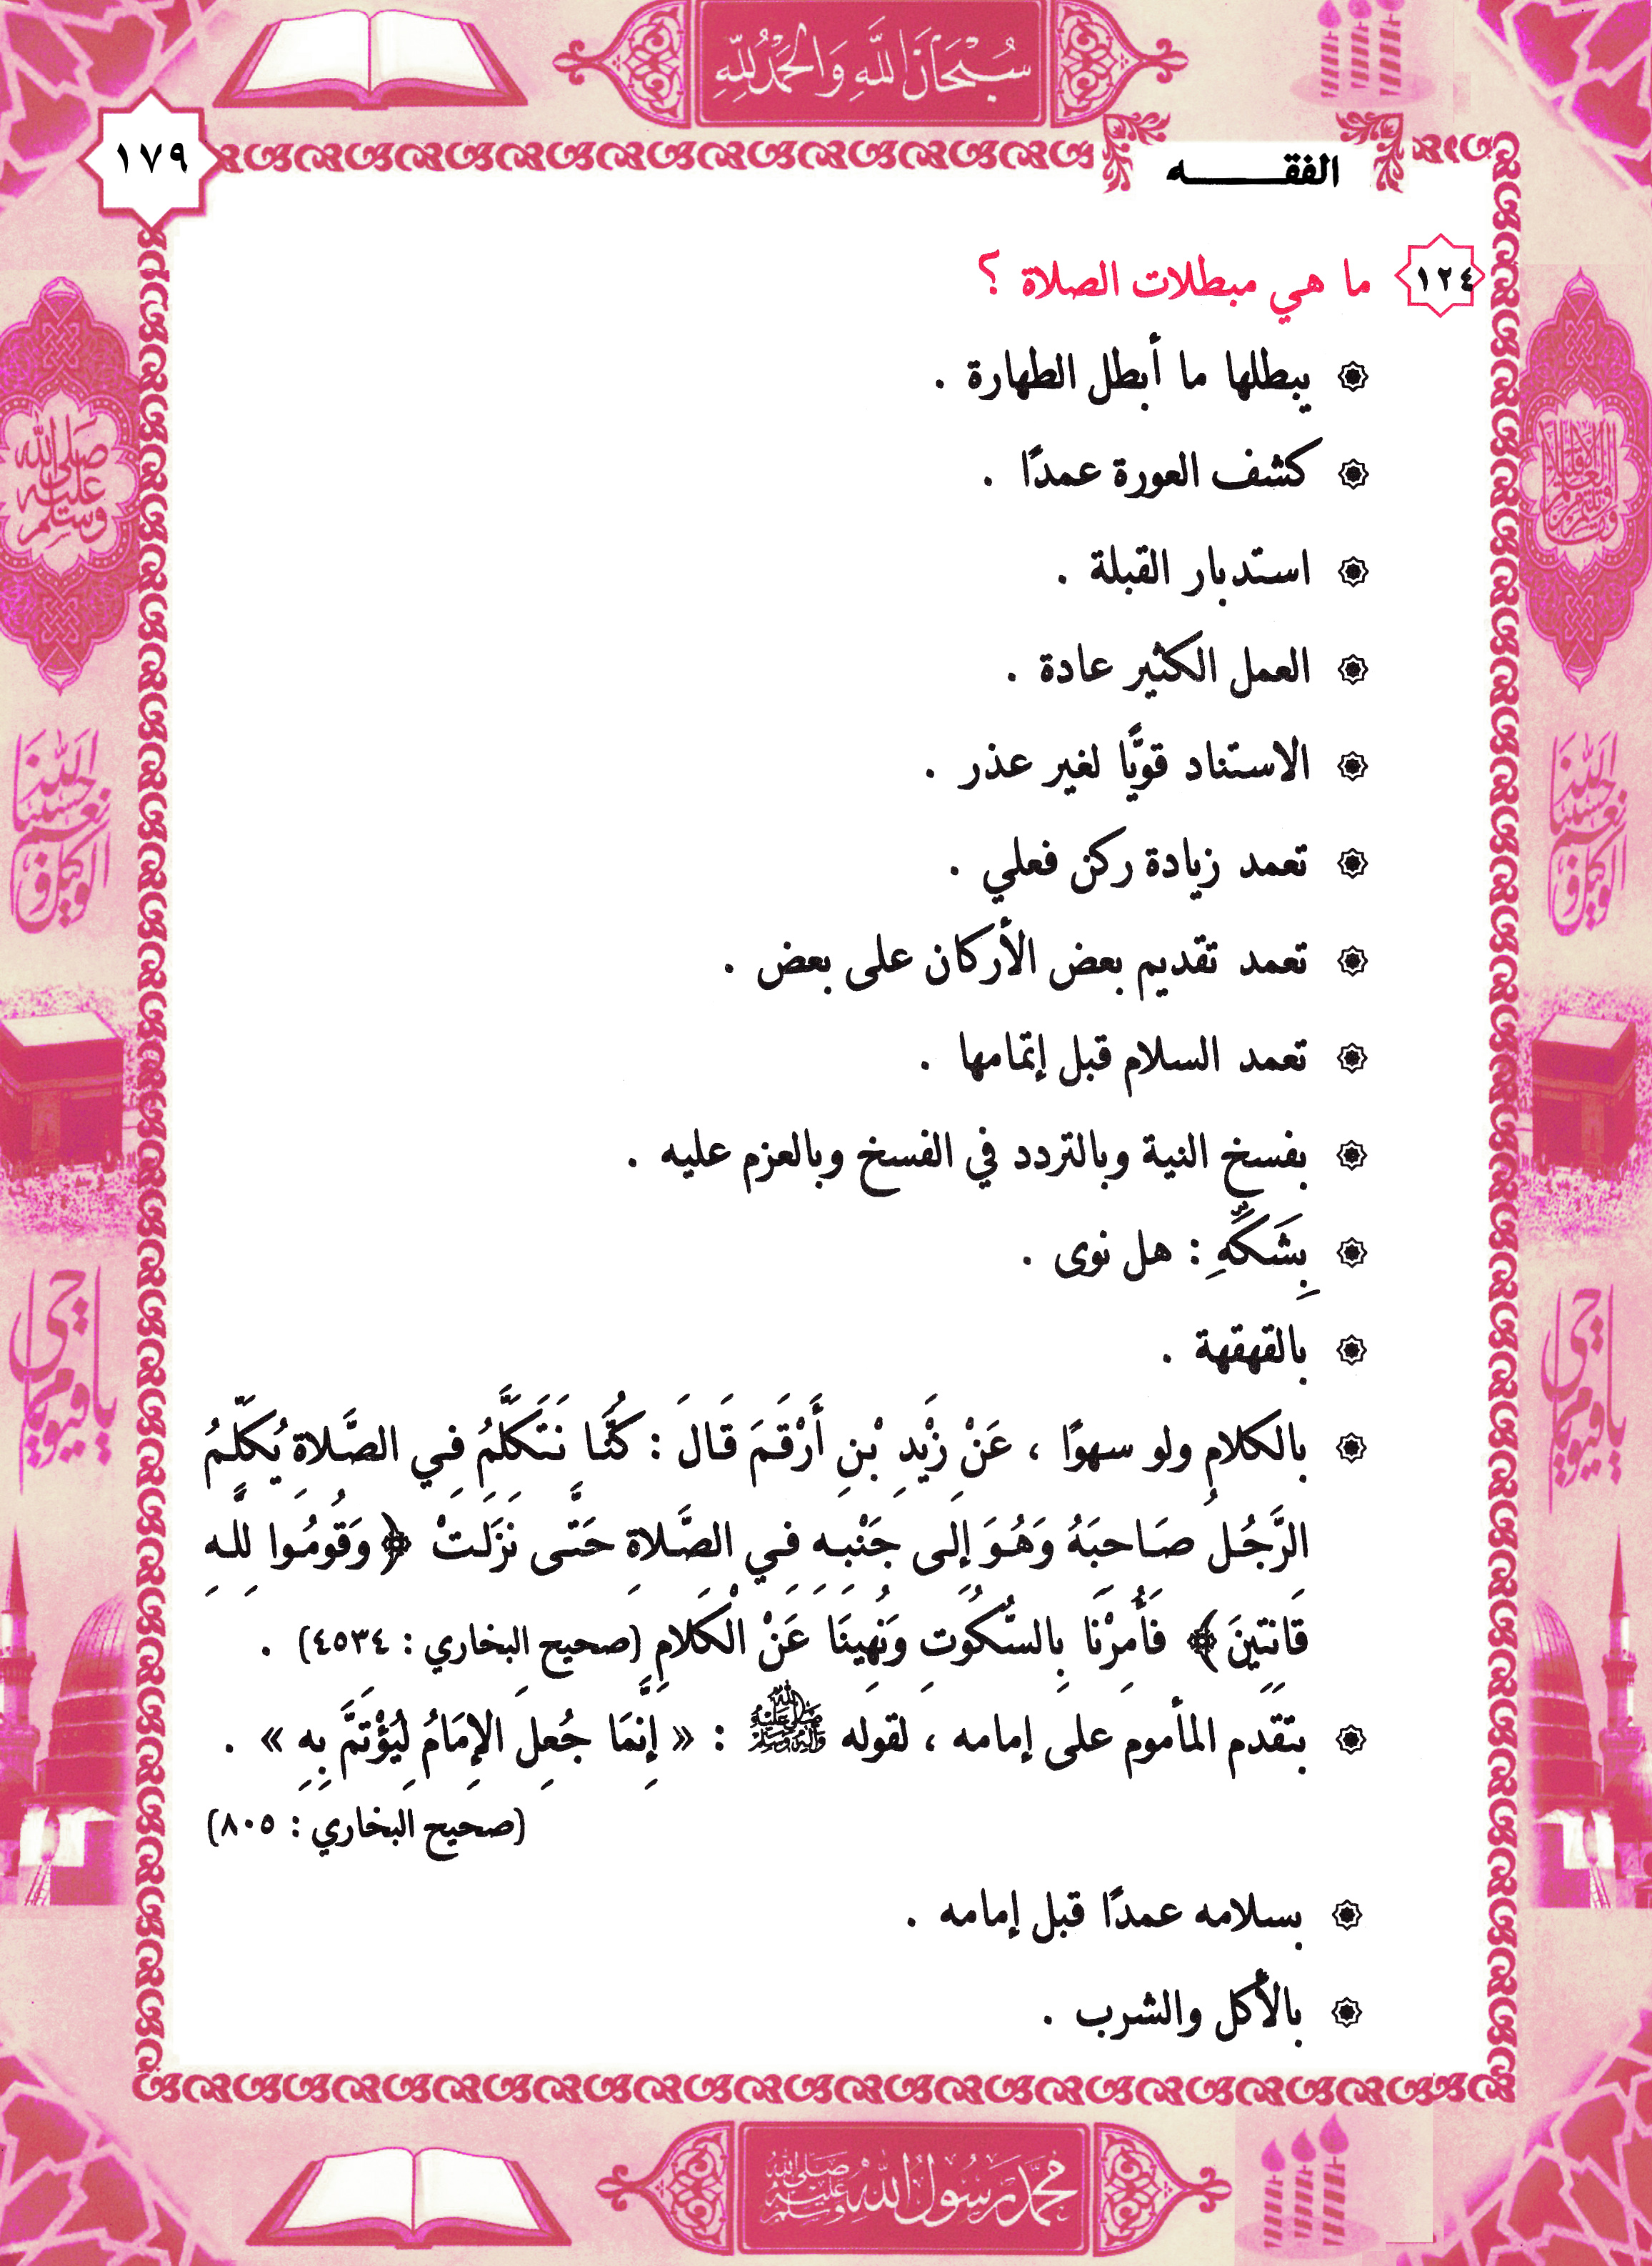 سُبْحَانَ اللَّهِ وَالحَمْدُ لِلَّهِ
١٧٩
الفقـــــه
١٢٤ ما هي مبطلات الصلاة ؟
يبطلها ما أبطل الطهارة .
كشف العورة عمدًا .
استدبار القبلة .
العمل الكثير عادة .
الاستناد قويًّا لغير عذر .
تعمد زيادة ركن فعلي .
تعمد تقديم بعض الأركان على بعض .
تعمد السلام قبل إتمامها .
بفسخ النية وبالتردد في الفسخ وبالعزم عليه .
بِشَكِّهِ : هل نوى .
بالقهقهة .
بالكلام ولو سهوًا ، عَنْ زَيْدِ بْنِ أَرْقَمَ قَالَ : كُنَّا نَتَكَلَّمُ فِي الصَّلاةِ يُكَلِّمُ
الرَّجُلُ صَاحِبَهُ وَهُوَ إِلَى جَنْبِهِ فِي الصَّلاةِ حَتَّى نَزَلَتْ ﴿وَقُومُوا لِلَّهِ
قَانِتِينَ﴾ فَأُمِرْنَا بِالسُّكُوتِ وَنُهِينَا عَنْ الْكَلامِ (صحيح البخاري : ٤٥٣٤) .
بتقدم المأموم على إمامه ، لقوله ﷺ : « إِنَّمَا جُعِلَ الإِمَامُ لِيُؤْتَمَّ بِهِ » .
(صحيح البخاري : ٨٠٥)
بسلامه عمدًا قبل إمامه .
بالأكل والشرب .
محمد رسول الله صلى الله عليه وسلم
صلى الله عليه وسلم
حسبنا الله ونعم الوكيل
حسبنا الله ونعم الوكيل
يا حي يا قيوم
يا حي يا قيوم